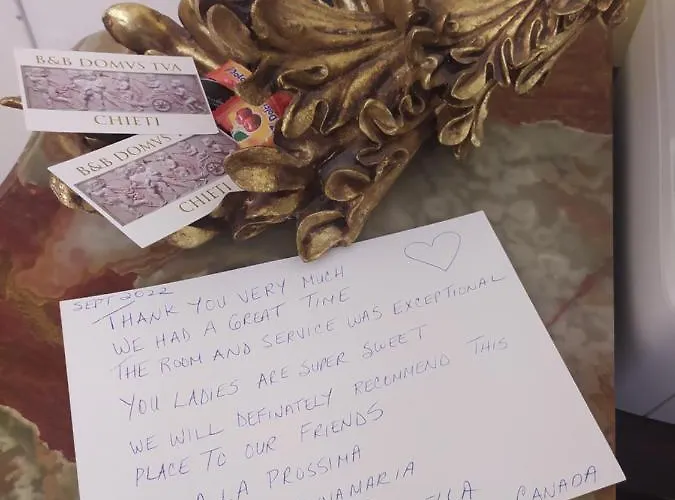 B&B DOMVS TVA
CHIETI
B&B DOMVS
CHIETI
SEPT 2022
THANK YOU VERY MUCH
WE HAD A GREAT TIME
THE ROOM AND SERVICE WAS EXCEPTIONAL
YOU LADIES ARE SUPER SWEET
WE WILL DEFINATELY RECOMMEND THIS
PLACE TO OUR FRIENDS
A LA PROSSIMA
CANADA